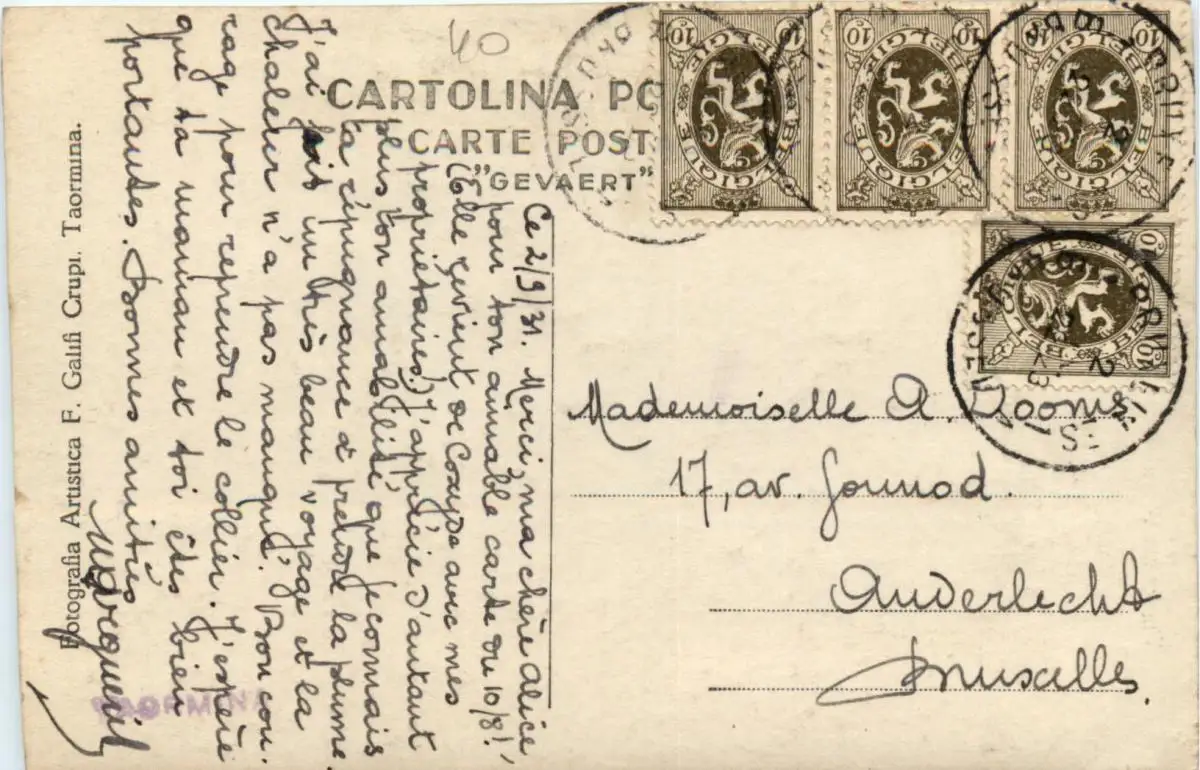 40
CARTOLINA PO
CARTE POST
"GEVAERT"
Ce 2/9/31. Merci, ma chère Alice,
pour ton aimable carte du 10/8!
(Elle revient de Coxyde avec mes
propriétaires.) J'apprécie d'autant
plus ton amabilité que je connais
ta répugnance à prendre la plume.
J'ai fait un très beau voyage et la
chaleur n'a pas manqué. Bon cou-
rage pour reprendre le collier. J'espère
que ta maman et toi êtes bien
portantes. Bonnes amitiés
Fotografia Artistica F. Galifi Crupi. Taormina.
TAORMINA
BELGIQUE BELGIE
10 10
BELGIQUE BELGIE
10 10
BELGIQUE BELGIE
10 10
BELGIQUE BELGIE
10 10
Mademoiselle A. Dooms
17, av. Gounod.
Anderlecht
Bruxelles.